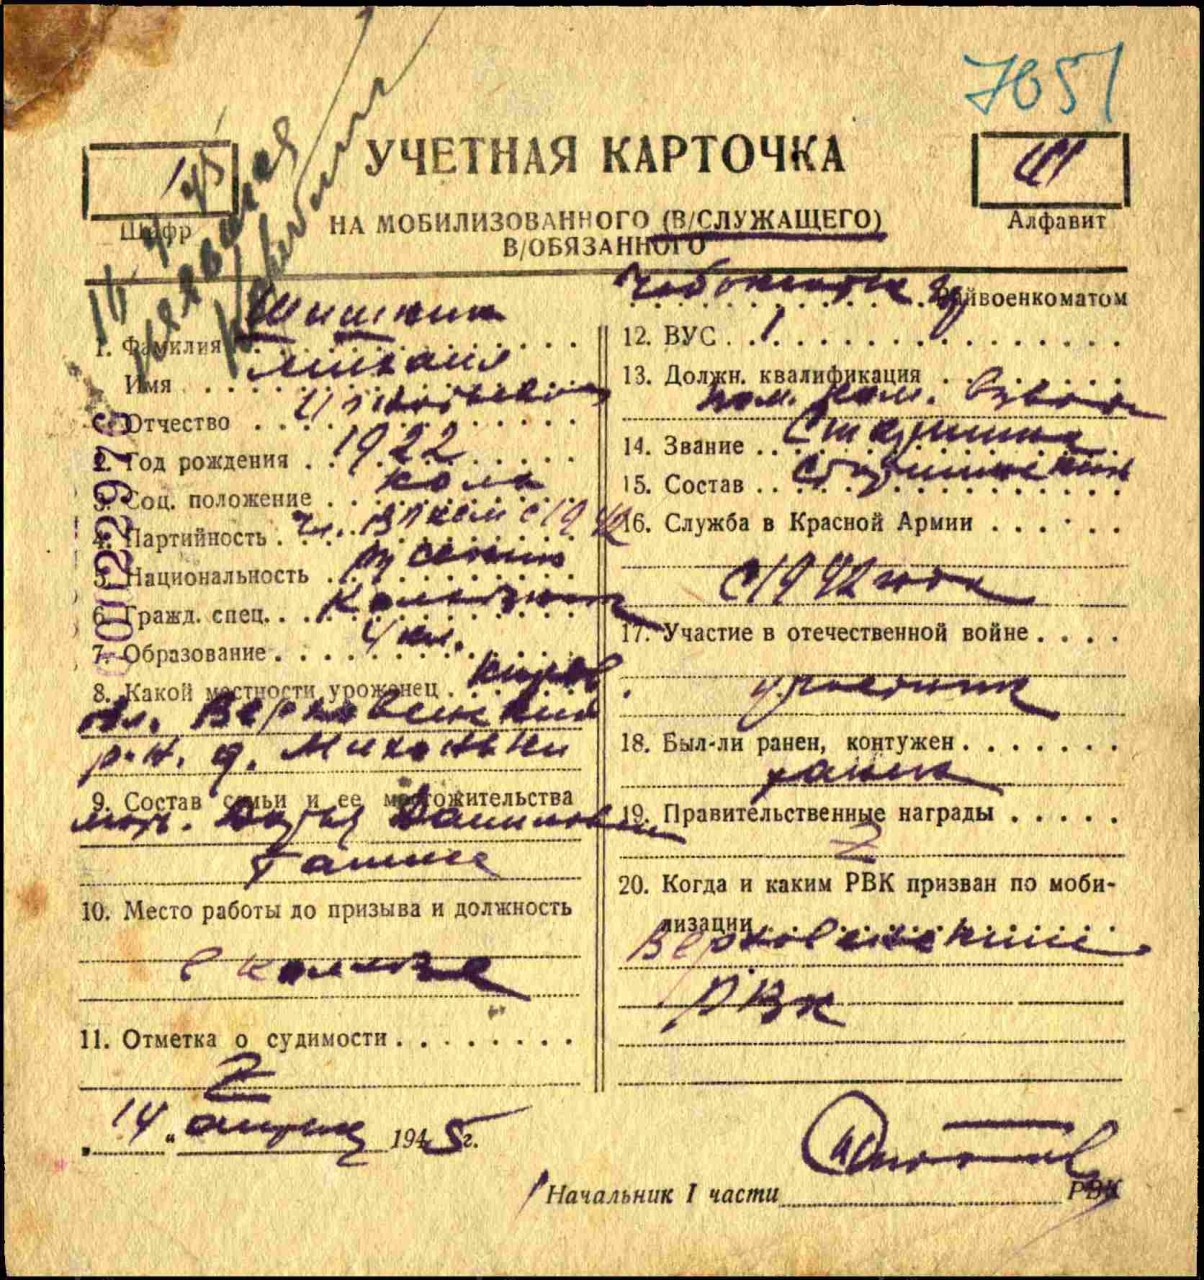 7051
1
УЧЕТНАЯ КАРТОЧКА
Ш
Шифр
НА МОБИЛИЗОВАННОГО (В/СЛУЖАЩЕГО)
В/ОБЯЗАННОГО
Алфавит
Райвоенкоматом
1. Фамилия Шишкин
Имя Михаил
Отчество
2. Год рождения 1922
3. Соц. положение колх
4. Партийность чл. ВЛКСМ с 1942
5. Национальность русский
6. Гражд. спец. Колхозник
7. Образование 4 кл.
8. Какой местности уроженец Киров
обл. Верховинский
р-н. д.
9. Состав семьи и ее местожительства
мать. Дарья Даниловна
10. Место работы до призыва и должность
в колхозе
11. Отметка о судимости
Z
„14“ апреля 1945 г.
12. ВУС 1
13. Должн. квалификация
пом. ком. взвода
14. Звание Старшина
15. Состав
16. Служба в Красной Армии
с 1942 года
17. Участие в отечественной войне
участник
18. Был-ли ранен, контужен
ранен
19. Правительственные награды
Z
20. Когда и каким РВК призван по моби-
лизации
Верховинский
РВК
Начальник I части РВК
000222976